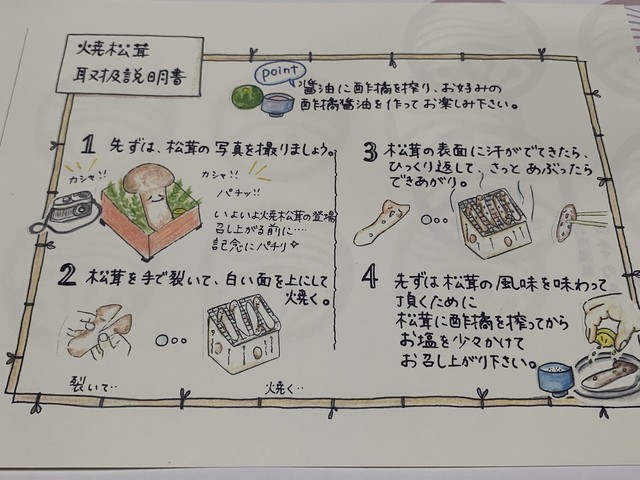 焼松茸
取扱説明書
point
醤油に酢橘を搾り、お好みの
酢橘醤油を作ってお楽しみ下さい。
1 先ずは、松茸の写真を撮りましょう。
カシャ!!
カシャ!!
パチッ!!
いよいよ焼松茸の登場
召し上がる前に…
記念にパチリ
2 松茸を手で裂いて、白い面を上にして
焼く。
裂いて…
焼く…
3 松茸の表面に汗がでてきたら、
ひっくり返して、さっと あぶったら
できあがり。
4 先ずは松茸の風味を味わって
頂くために
松茸に酢橘を搾ってから
お塩を少々かけて
お召し上がり下さい。